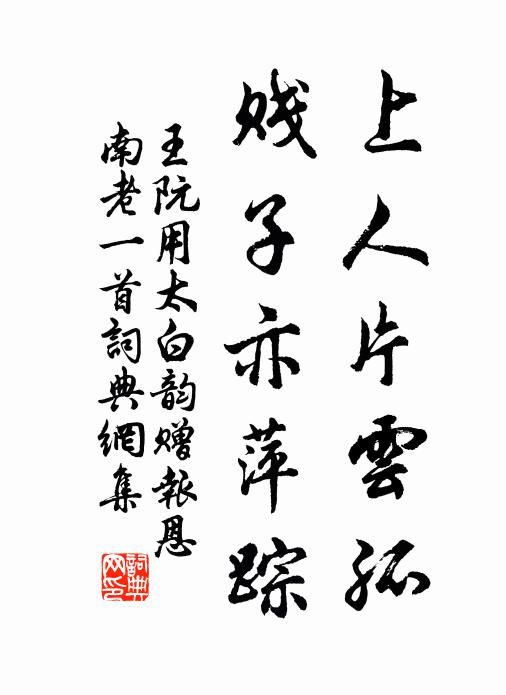 上人片雲孤
贱子亦萍踪
王阮用太白韵赠報恩
南老一首詞典網集
詞典
网印